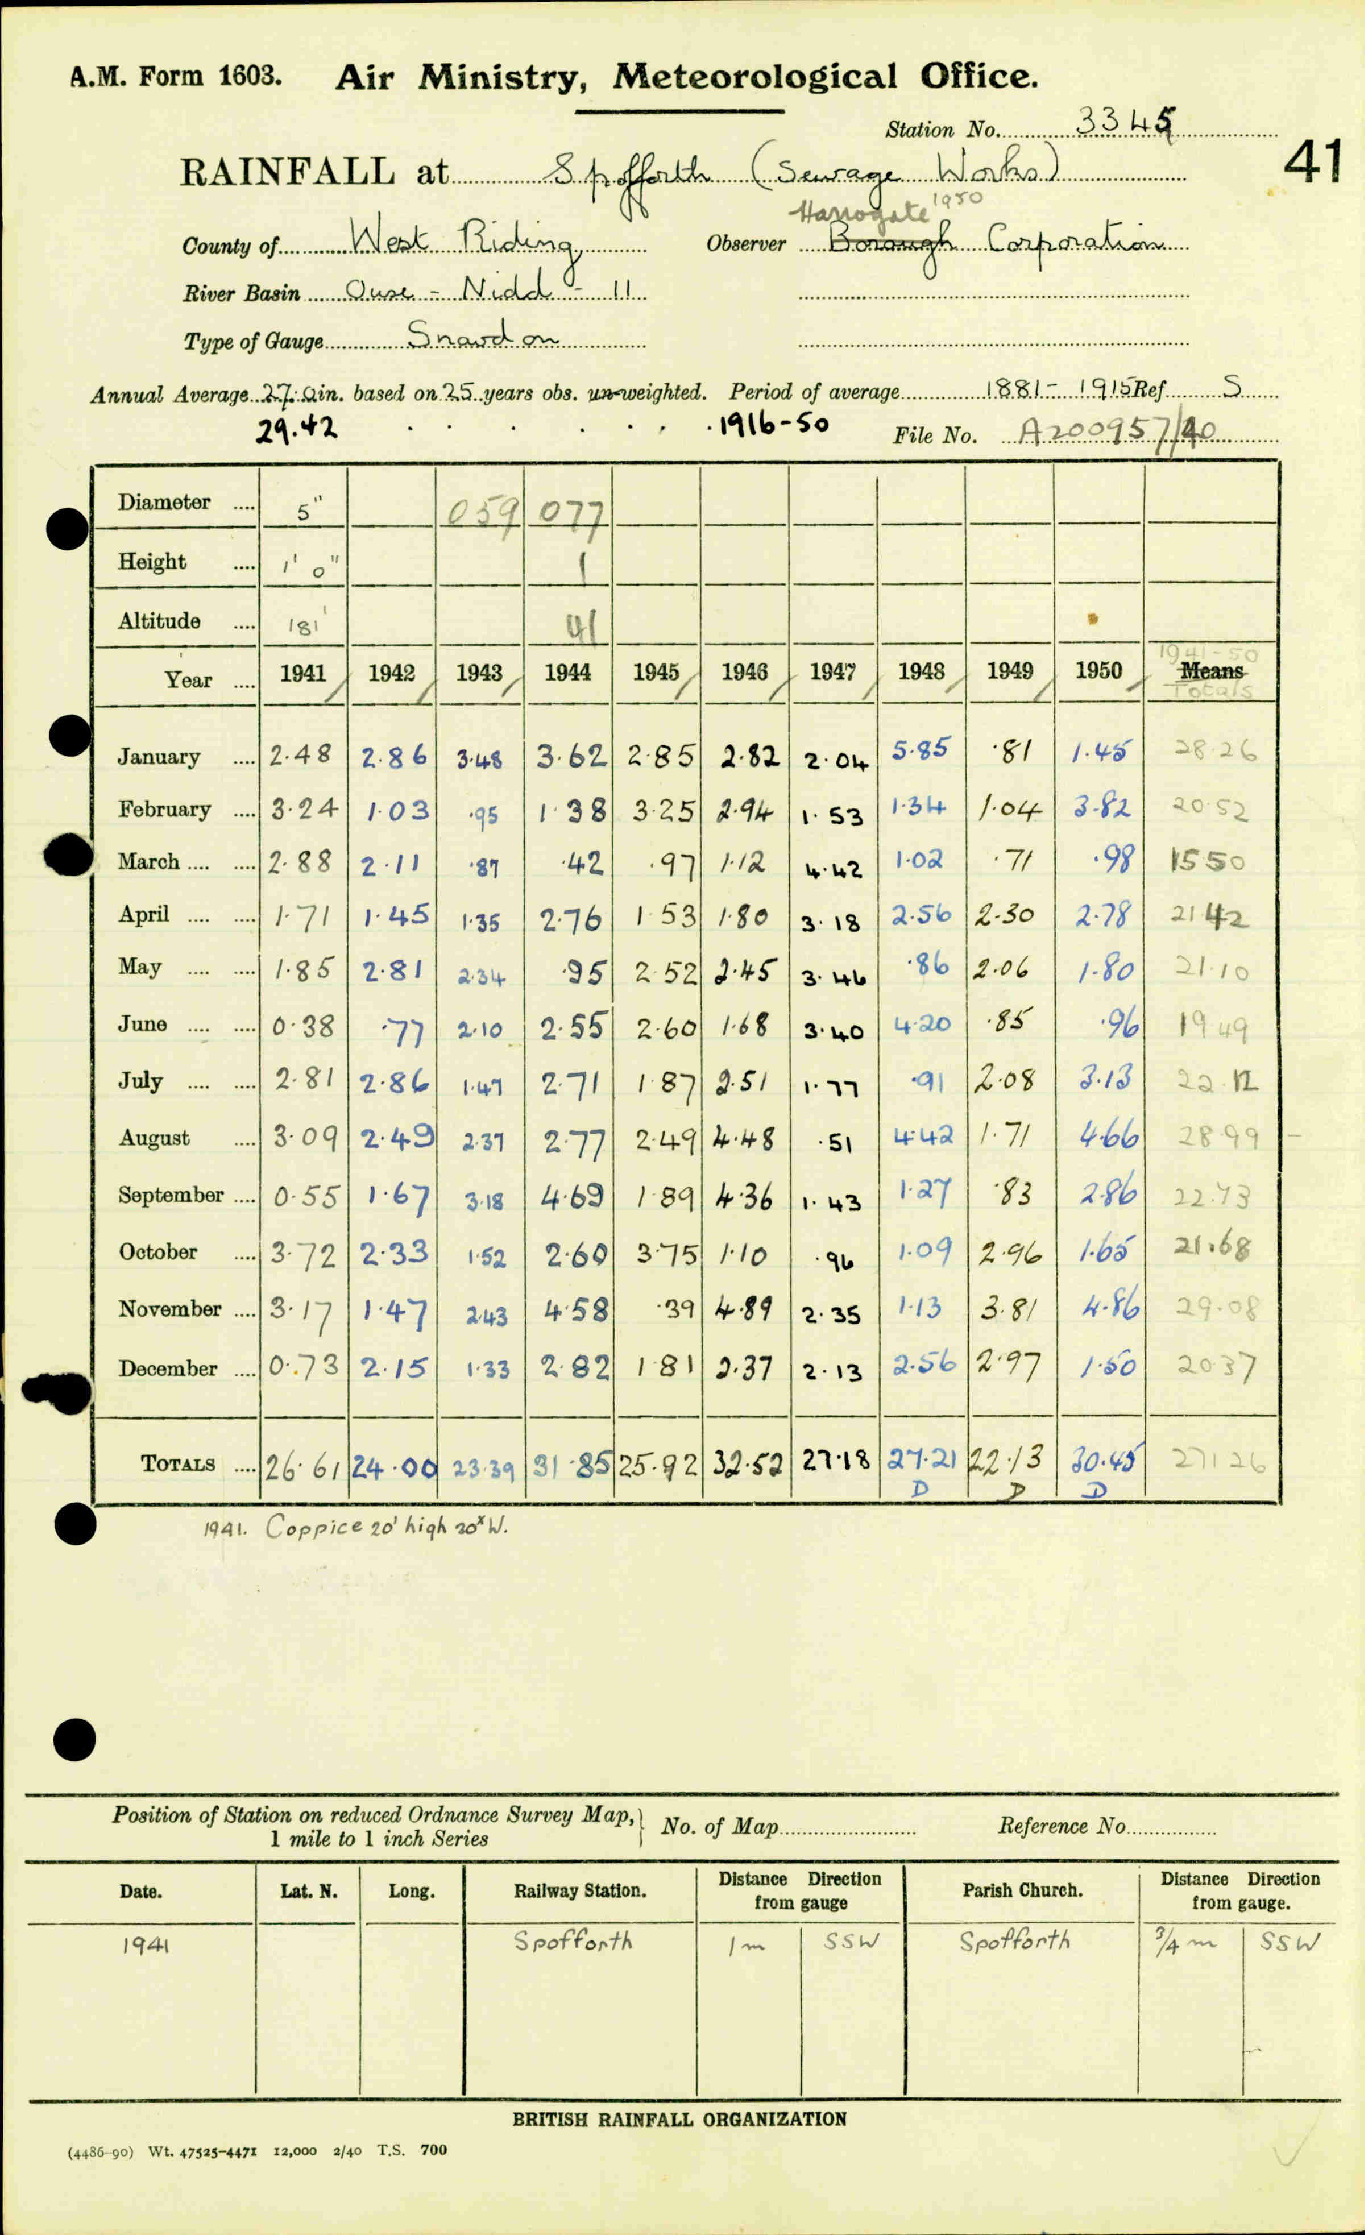 A.M. Form 1603. Air Ministry, Meteorological Office.
Station No. 3345
41
RAINFALL at Spofforth (Sewage Works)
Harrogate 1950
County of West Riding Observer Borough Corporation
River Basin Ouse - Nidd - 11
Type of Gauge Snowdon
Annual Average 27.0 in. based on 25 years obs. un-weighted. Period of average 1881- 1915 Ref. S
29.42 . . . . . . . 1916-50 File No. A200957/40
Diameter .... 5" 059 077
Height .... 1' 0" 1
Altitude .... 181' 41
1941-50
Year .... 1941 1942 1943 1944 1945 1946 1947 1948 1949 1950 Means
Totals
January .... 2.48 2.86 3.48 3.62 2.85 2.82 2.04 5.85 .81 1.45 28.26
February .... 3.24 1.03 .95 1.38 3.25 2.94 1.53 1.34 1.04 3.82 20.52
March .... .... 2.88 2.11 .87 .42 .97 1.12 4.42 1.02 .71 .98 15.50
April .... .... 1.71 1.45 1.35 2.76 1.53 1.80 3.18 2.56 2.30 2.78 21.42
May .... .... 1.85 2.81 2.34 .95 2.52 2.45 3.46 .86 2.06 1.80 21.10
June .... .... 0.38 .77 2.10 2.55 2.60 1.68 3.40 4.20 .85 .96 19.49
July .... .... 2.81 2.86 1.47 2.71 1.87 2.51 1.77 .91 2.08 3.13 22.12
August .... 3.09 2.49 2.37 2.77 2.49 4.48 .51 4.42 1.71 4.66 28.99
September .... 0.55 1.67 3.18 4.69 1.89 4.36 1.43 1.27 .83 2.86 22.73
October .... 3.72 2.33 1.52 2.60 3.75 1.10 .96 1.09 2.96 1.65 21.68
November .... 3.17 1.47 2.43 4.58 .39 4.89 2.35 1.13 3.81 4.86 29.08
December .... 0.73 2.15 1.33 2.82 1.81 2.37 2.13 2.56 2.97 1.50 20.37
TOTALS .... 26.61 24.00 23.39 31.85 25.92 32.52 27.18 27.21 22.13 30.45 271.26
D D D
1941. Coppice 20' high 20x W.
Position of Station on reduced Ordnance Survey Map, } No. of Map Reference No.
1 mile to 1 inch Series
Date. Lat. N. Long. Railway Station. Distance Direction from gauge Parish Church. Distance Direction from gauge.
1941 Spofforth 1 m SSW Spofforth 3/4 m SSW
BRITISH RAINFALL ORGANIZATION
(4486-90) Wt. 47525-4471 12,000 2/40 T.S. 700